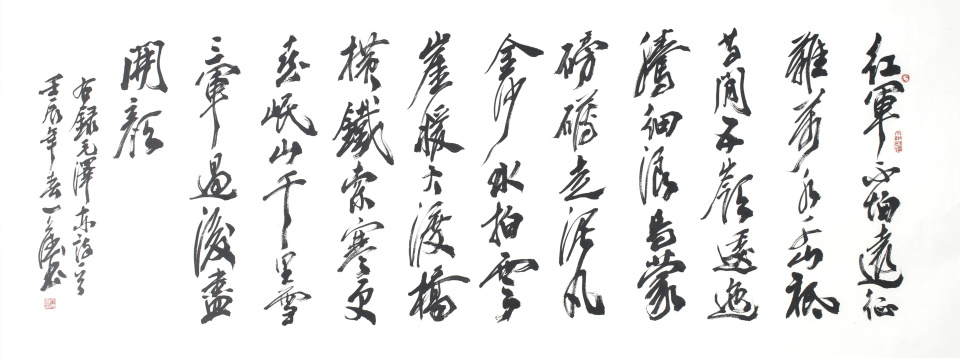 紅軍不怕遠征
難萬水千山祗
等閒五嶺逶迤
騰細浪烏蒙
磅礴走泥丸
金沙水拍雲
崖暖大渡橋
橫鐵索寒更
喜岷山千里雪
三軍過後盡
開顏
右録毛澤東詩一首
壬辰年春一書